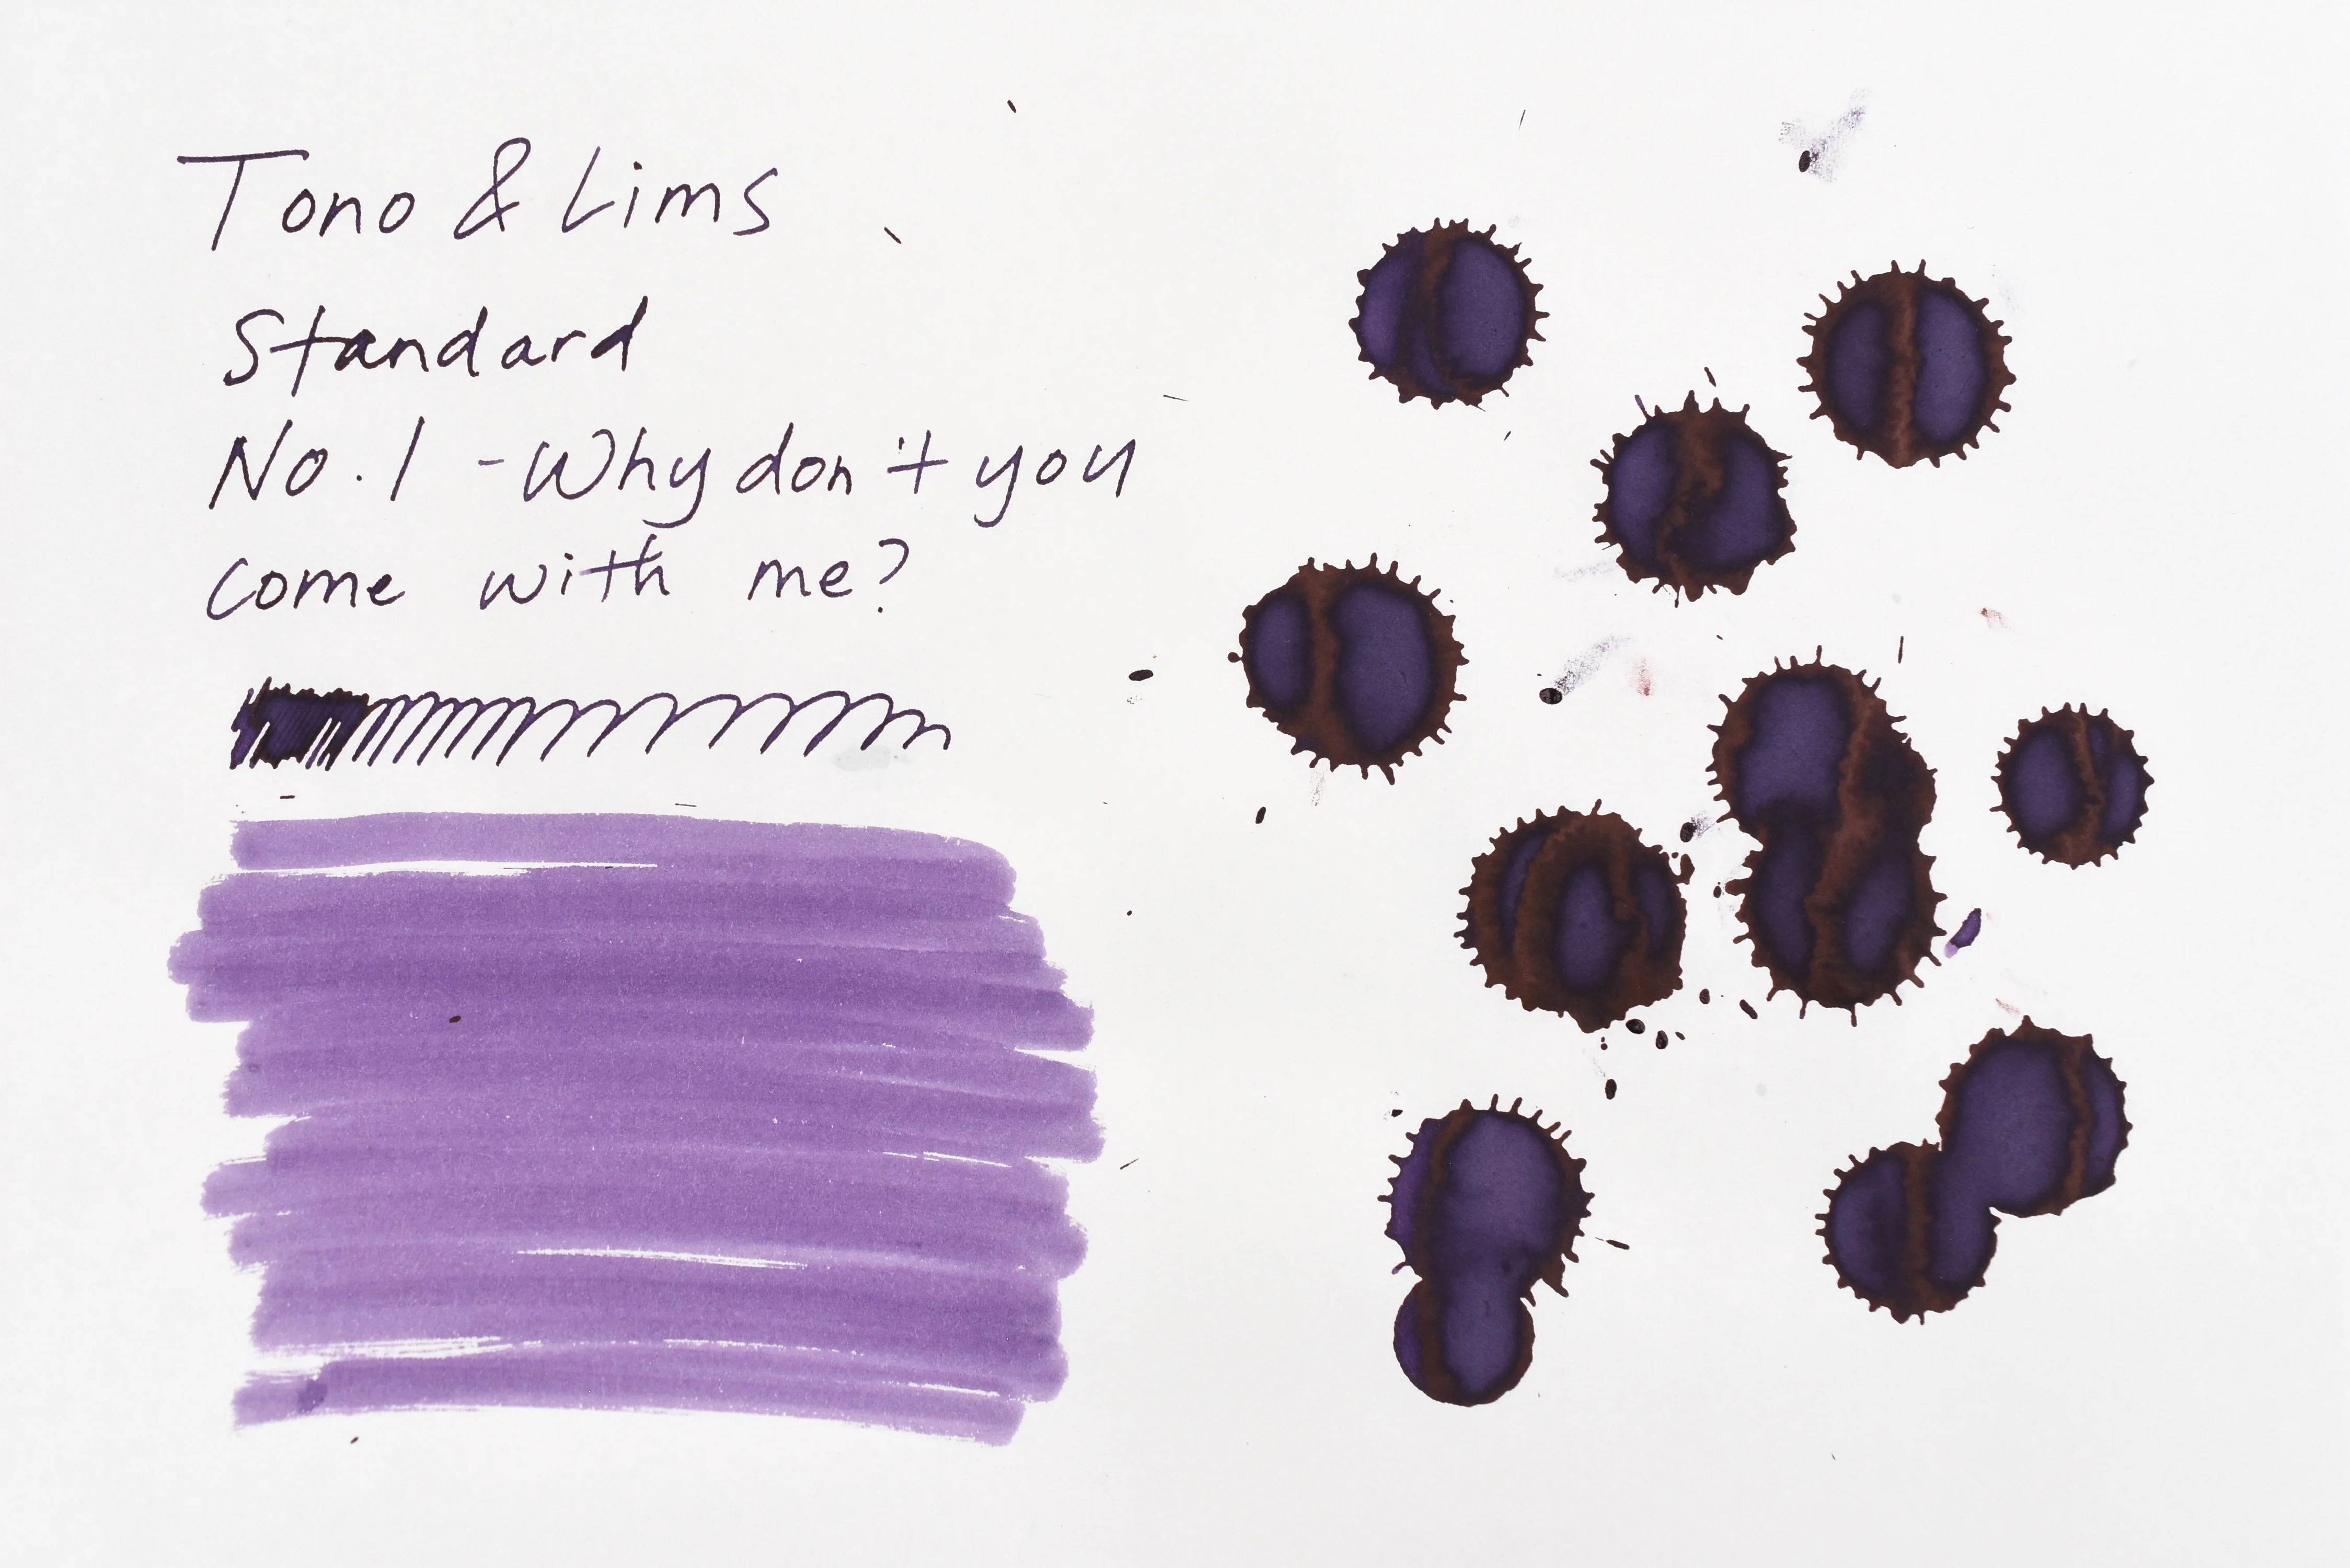 Tono & Lims
Standard
No.1 - Why don't you
come with me?